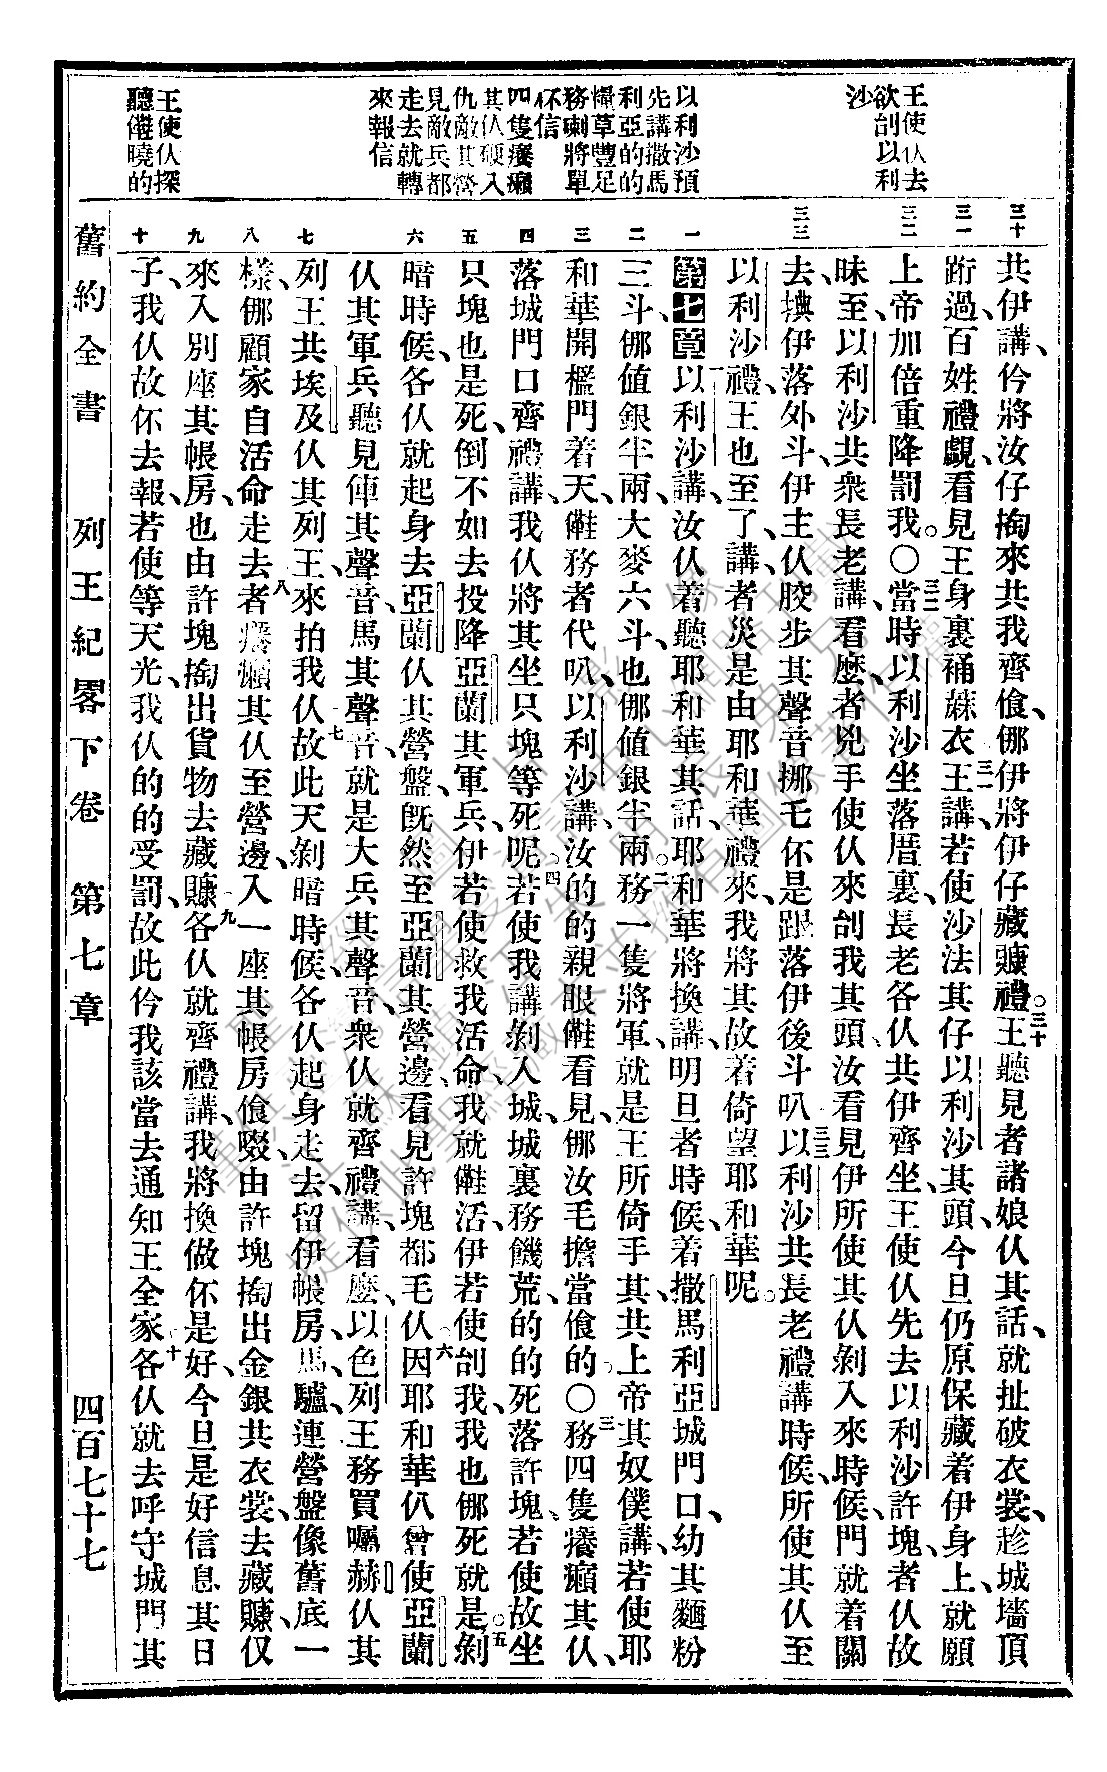 王使仫去
欲刣以利
沙
以利沙預
先講撒馬
利亞的的
糧草豐足
務喇將單
伓信
四隻癢癩
其仫硬入
仇敵其營
見敵兵都
走去就轉
來報信
王使仫探
聽僆曉的
三十
三一
三二
三三
一
二
三
四
五
六
七
八
九
十
共伊講、仱將汝仔搊來共我齊飡、㑚伊將伊仔藏賺禮。三十王聽見者諸娘仫其話、就扯破衣裳、趁城墻頂
跡過、百姓禮覷看見王身裏補蔴衣。三一王講、若使沙法其仔以利沙其頭、今旦仍原保藏着伊身上、就願
上帝、加倍重降罰我。○三二當時以利沙坐落厝裏、長老各仫共伊齊坐、王使仫先去以利沙許塊、者仫故
昧至、以利沙共衆長老講、看麽、者兇手使仫來刣我其頭、汝看見伊所使其仫剝入來時候、門就着關
去、㨻伊落外斗、伊主仫骹步其聲音、挪毛伓是跟落伊後斗叭。三三以利沙共長老禮講時候、所使其仫至
以利沙禮、王也至了、講、者災是由耶和華禮來、我將其故着倚望耶和華呢。
第七章、以利沙講、汝仫着聽耶和華其話、耶和華將換講、明旦者時候、着撒馬利亞城門口、幼其麵粉
三斗、㑚值銀半兩、大麥六斗、也㑚值銀半兩。二務一隻將軍、就是王所倚手其、共上帝其奴僕講、若使耶
和華開檻門着天、僆務者代叭、以利沙講、汝的的親眼僆看見、㑚汝毛擔當飡的。○三務四隻癢癩其仫、
落城門口齊禮講、我仫將其坐只塊等死呢。四若使我講剝入城、城裏務饑荒、的的死落許塊、若使故坐
只塊也是死、倒不如去投降亞蘭其軍兵、伊若使救我活命、我就僆活、伊若使刣我、我也㑚死就是。五剝
暗時候、各仫就起身去亞蘭仫其營盤、旣然至亞蘭其營邊、看見許塊都毛仫。六因耶和華仈曾使亞蘭
仫其軍兵聽見俥其聲音、馬其聲音、就是大兵其聲音、衆仫就齊禮講、看麽、以色列王務買囑赫仫其
列王、共埃及仫其列王、來拍我仫。七故此天剝暗時候、各仫起身走去、留伊帳房、馬、驢、連營盤像舊底一
樣、㑚顧家自活命走去。八者癢癩其仫至營邊、入一座其帳房、飡啜、由許塊搊出金銀共衣裳、去藏賺、仅
來入別座其帳房、也由許塊搊出貨物去藏賺。九各仫就齊禮講、我將換做伓是好、今旦是好信息其日
子、我仫故伓去報、若使等天光、我仫的的受罰、故此仱我該當去通知王全家。十各仫就去呼守城門其
舊約全書　列王紀畧下卷　第七章　四百七十七